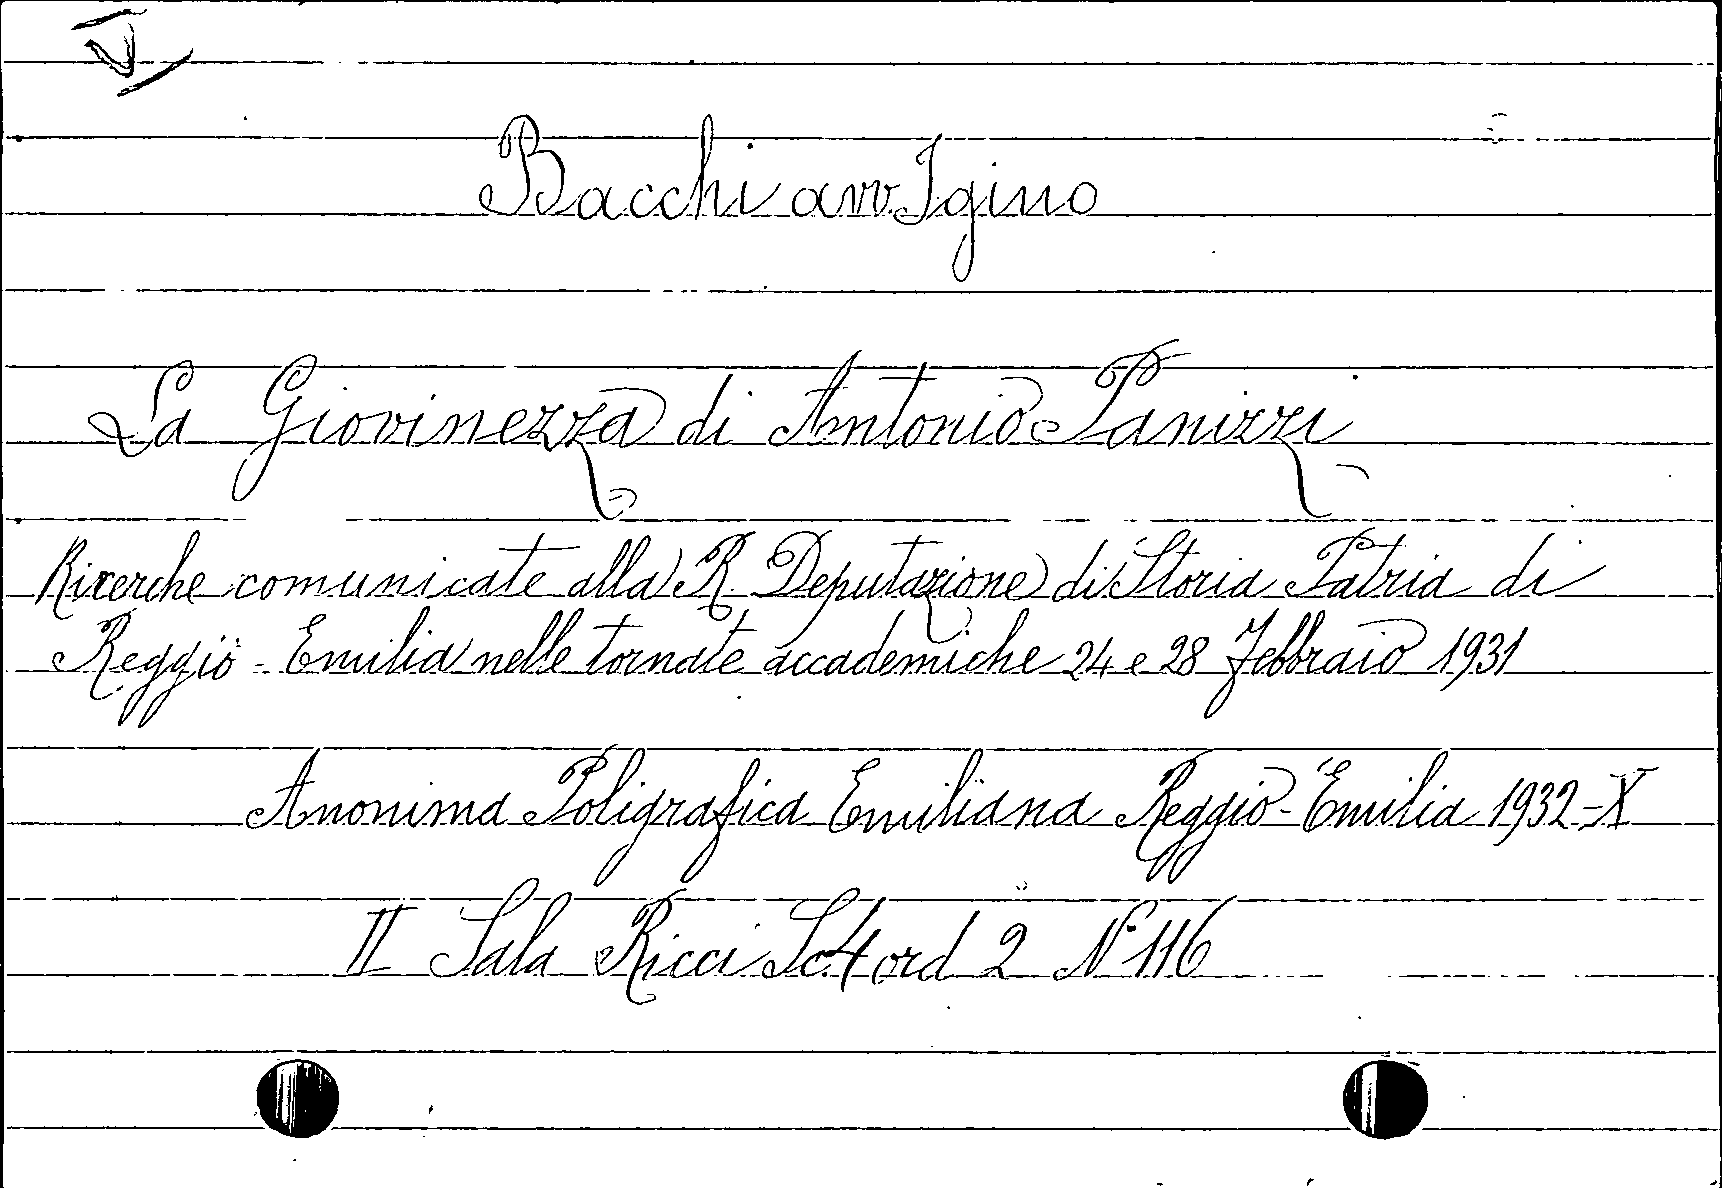 V
Bacchi avv. Igino
La Giovinezza di Antonio Panizzi
Ricerche comunicate alla R. Deputazione di Storia Patria di
Reggio - Emilia nelle tornate accademiche 24 e 28 Febbraio 1931
Anonima Poligrafica Emiliana Reggio - Emilia 1932-X
II Sala Ricci Sc.4 ord 2 N° 116